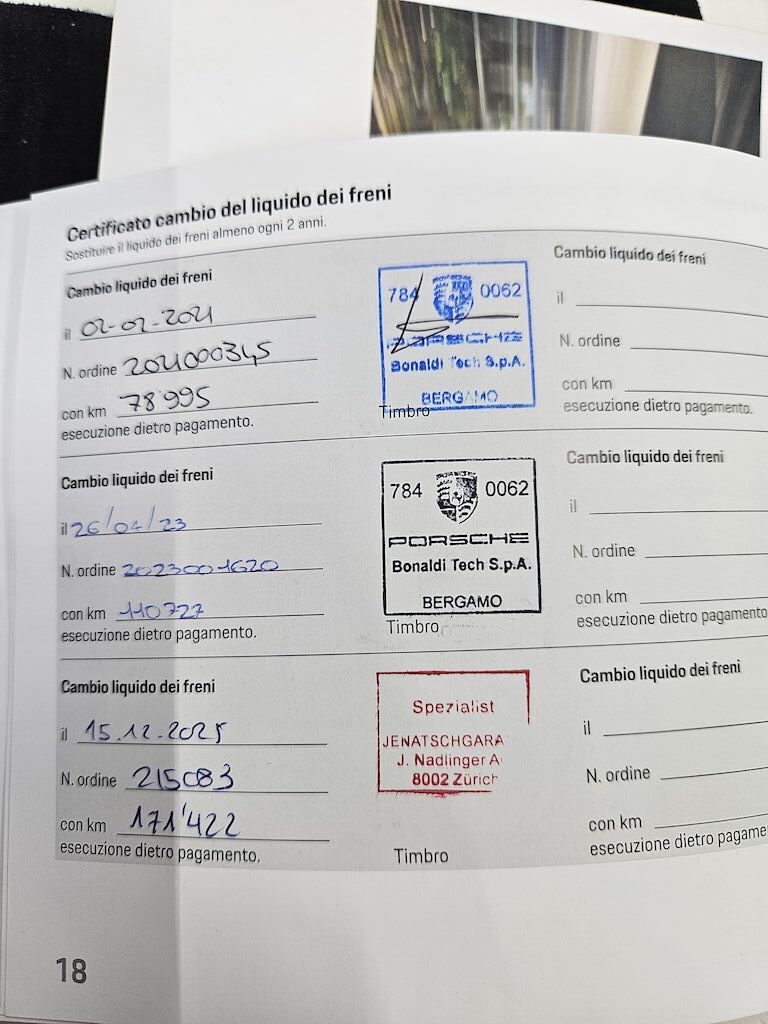 Certificato cambio del liquido dei freni
Sostituire il liquido dei freni almeno ogni 2 anni.
Cambio liquido dei freni
il 02-02-2021
N. ordine 2021000345
con km 78'995
esecuzione dietro pagamento.
784 0062
PORSCHE
Bonaldi Tech S.p.A.
BERGAMO
Timbro
Cambio liquido dei freni
il
N. ordine
con km
esecuzione dietro pagamento.
Cambio liquido dei freni
il 26/04/23
N. ordine 2023001620
con km 110727
esecuzione dietro pagamento.
784 0062
PORSCHE
Bonaldi Tech S.p.A.
BERGAMO
Timbro
Cambio liquido dei freni
il
N. ordine
con km
esecuzione dietro pagamento
Cambio liquido dei freni
il 15.12.2025
N. ordine 215083
con km 171'422
esecuzione dietro pagamento.
Spezialist
JENATSCHGARA
J. Nadlinger A
8002 Zürich
Timbro
Cambio liquido dei freni
il
N. ordine
con km
esecuzione dietro pagame
18